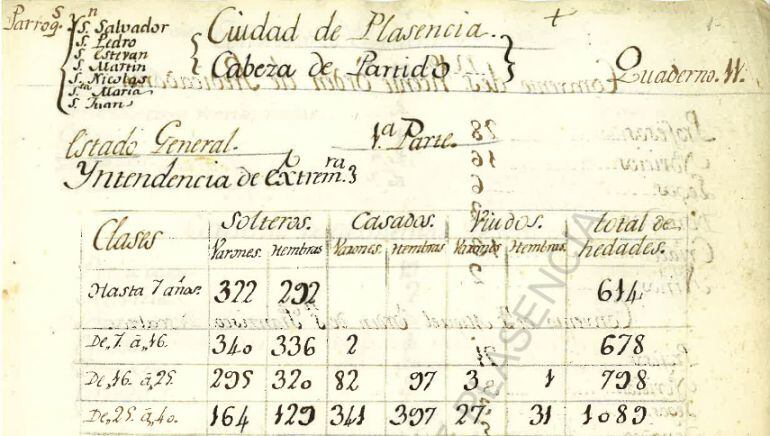 Parroq.s
Sn Salvador
S. Pedro
S. Estevan
S. Martin
S. Nicolas
Sta Maria
S. Juan
Ciudad de Plasencia.
Cabeza de Partido
Quaderno. 11.
Estado General. 1.a Parte.
Yntendencia de Extrem.ra 3
Clases Solteros. Casados. Viudos. total de
Varones. Hembras Varones. Hembras Varones Hembras hedades.
Hasta 7 años. 322 292 614
De, 7. â, 16. 340 336 2 678
De, 16. â, 25. 295 320 82 97 3 1 798
De, 25. â, 40. 164 129 341 397 27 31 1089
PLASENCIA